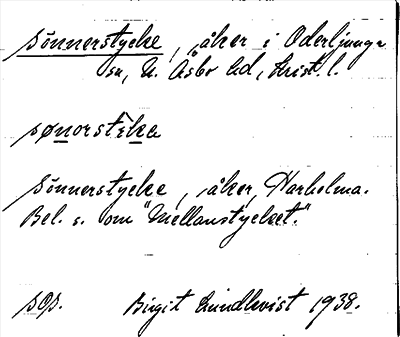 Sönnerstycke, åker i Oderljunga
sn, N. Åsbo hd, Krist. l.
sønorstèka
Sönnerstycke, åker, Harholma.
Bel. s. om "Mellanstycket."
sop. Birgit Lindkvist 1938.